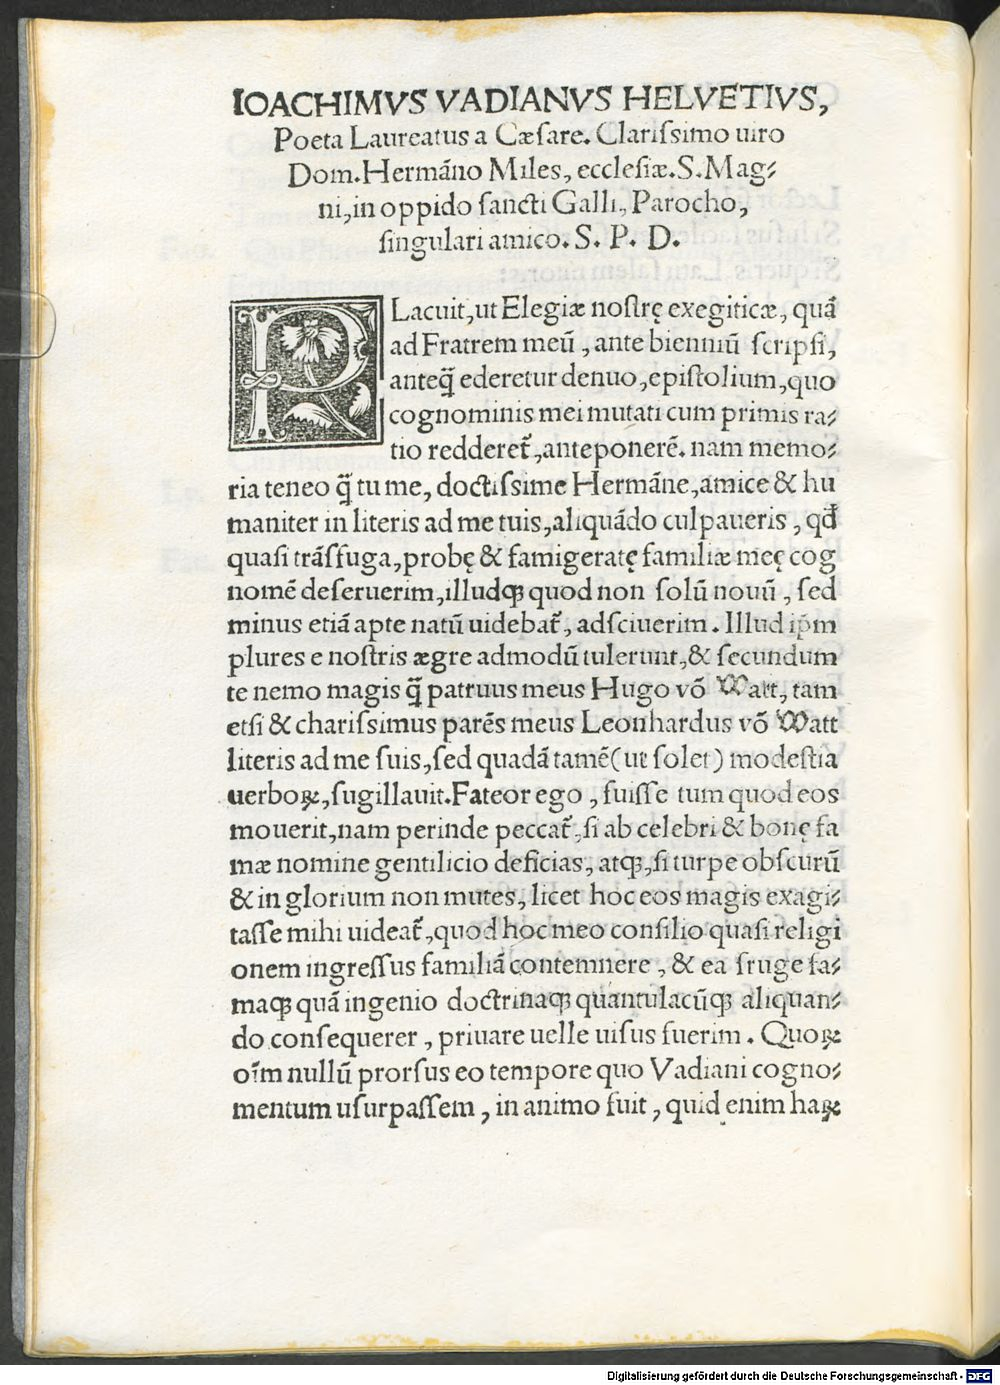 IOACHIMVS VADIANVS HELVETIVS,
Poeta Laureatus a Cæſare. Clariſsimo uiro
Dom. Hermāno Miles, eccleſiæ. S. Mag⸗
ni, in oppido ſancti Galli, Parocho,
ſingulari amico. S. P. D.
PLacuit, ut Elegiæ noſtrę exegiticæ, quā
ad Fratrem meū, ante bienniū ſcripſi,
anteq̃ ederetur denuo, epiſtolium, quo
cognominis mei mutati cum primis ra⸗
tio redderet᷑, anteponerē. nam memo⸗
ria teneo q̃ tu me, doctiſsime Hermāne, amice & hu
maniter in literis ad me tuis, aliquādo culpaueris, qđ
quaſi trāſfuga, probę & famigeratę familiæ meę cog
nomē deſeruerim, illudqꝫ quod non ſolū nouū, ſed
minus etiā apte natū uidebat᷑, adſciuerim. Illud ip̄m
plures e noſtris ægre admodū tulerunt, & ſecundum
te nemo magis q̃ patruus meus Hugo vō Watt, tam
etſi & chariſsimus parēs meus Leonhardus vō Watt
literis ad me ſuis, ſed quadā tamē (ut ſolet) modeſtia
uerboꝝ, ſugillauit. Fateor ego, fuiſſe tum quod eos
mouerit, nam perinde peccat᷑, ſi ab celebri & bonę fa
mæ nomine gentilicio deficias, atqꝫ, ſi turpe obſcurū
& in glorium non mutes, licet hoc eos magis exagi⸗
taſſe mihi uideat᷑, quod hoc meo conſilio quaſi religi
onem ingreſſus familiā contemnere, & ea fruge fa⸗
maqꝫ quā ingenio doctrinaqꝫ quantulacūqꝫ aliquan⸗
do conſequerer, priuare uelle uiſus fuerim. Quoꝝ
oīm nullū prorſus eo tempore quo Vadiani cogno⸗
mentum uſurpaſſem, in animo fuit, quid enim haꝝ
Digitalisierung gefördert durch die Deutsche Forschungsgemeinschaft - DFG